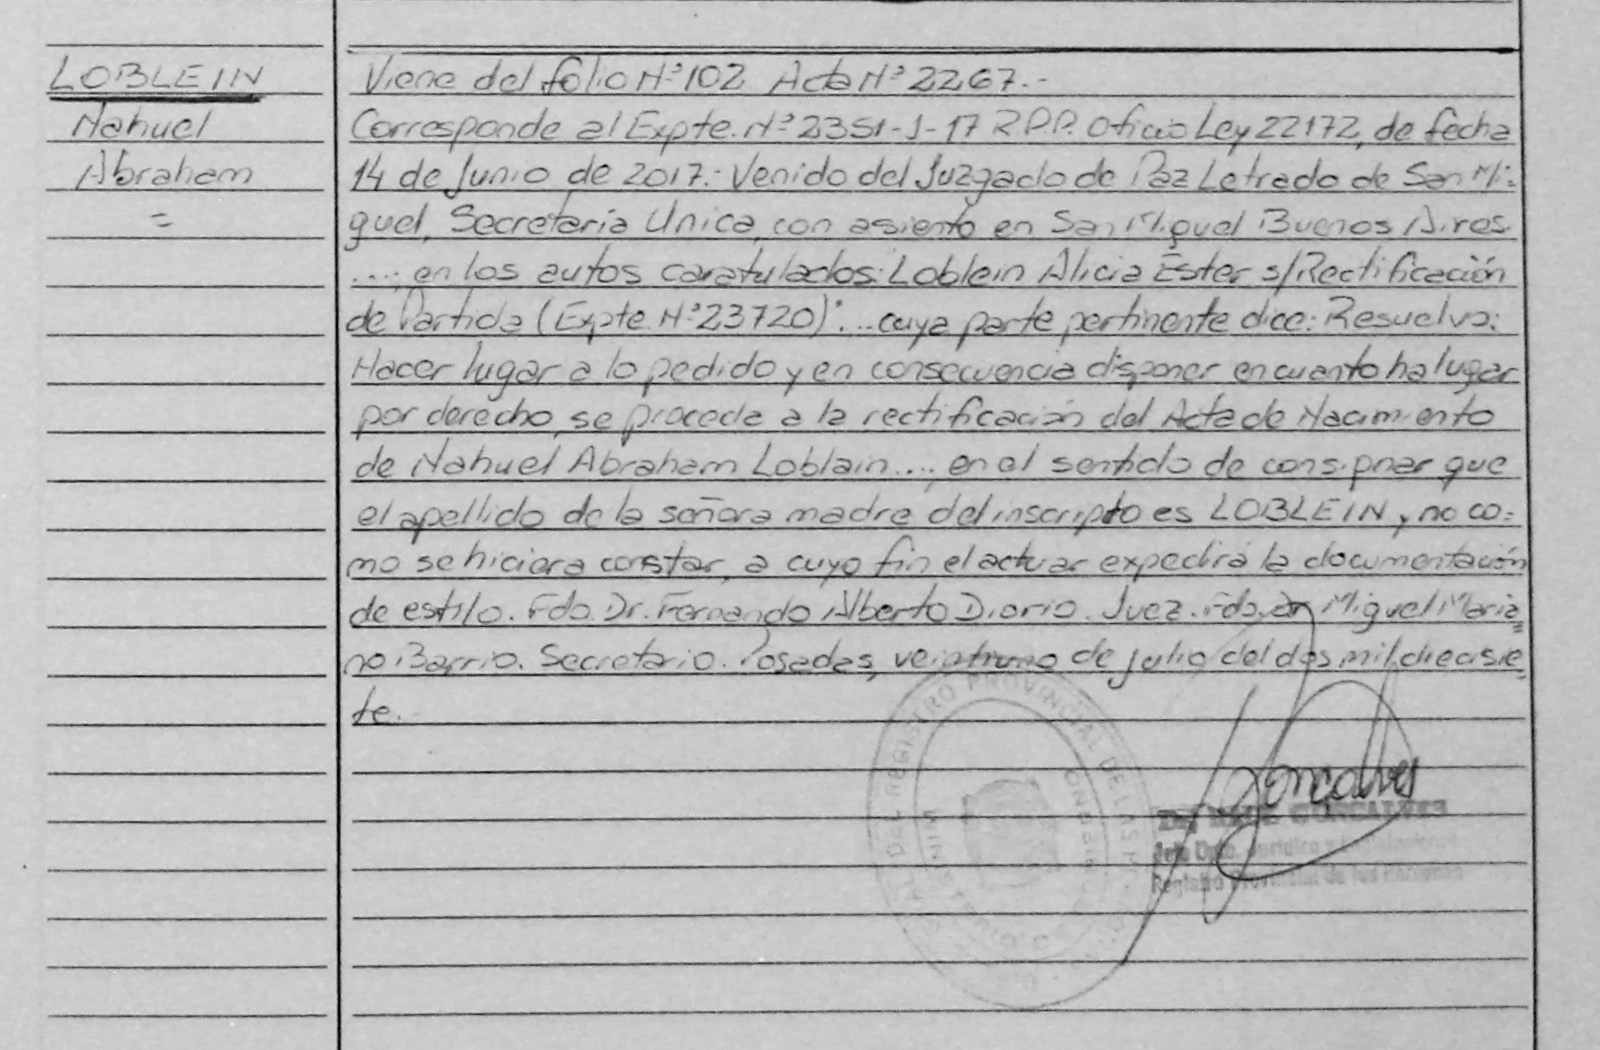 LOBLEIN
Nahuel
Abraham
=
Viene del folio N° 102 Acta N° 2267.-
Corresponde al Expte. N° 2351-J-17 R.P.P. Oficio Ley 22172, de fecha
14 de Junio de 2017.- Venido del Juzgado de Paz Letrado de San Mi=
guel, Secretaría Unica, con asiento en San Miguel Buenos Aires.
...; en los autos caratulados: Loblein Alicia Ester s/Rectificación
de Partida (Expte. N° 23720)"... cuya parte pertinente dice: Resuelvo:
Hacer lugar a lo pedido y en consecuencia disponer en cuanto ha lugar
por derecho, se proceda a la rectificación del Acta de Nacimiento
de Nahuel Abraham Loblain...; en el sentido de consignar que
el apellido de la señora madre del inscripto es LOBLEIN, y no co=
mo se hiciera constar, a cuyo fin el actuar expedirá la documentación
de estilo. Fdo. Dr. Fernando Alberto Diorio. Juez. Fdo. Dr Miguel Maria=
no Barrio. Secretario. Posadas, veintiuno de julio del dos mil diecisie
te.
DEL REGISTRO PROVINCIAL DE LAS
Goncalves
GONCALVES
Jefe Dpto. Jurídico
Registro Provincial de las Personas